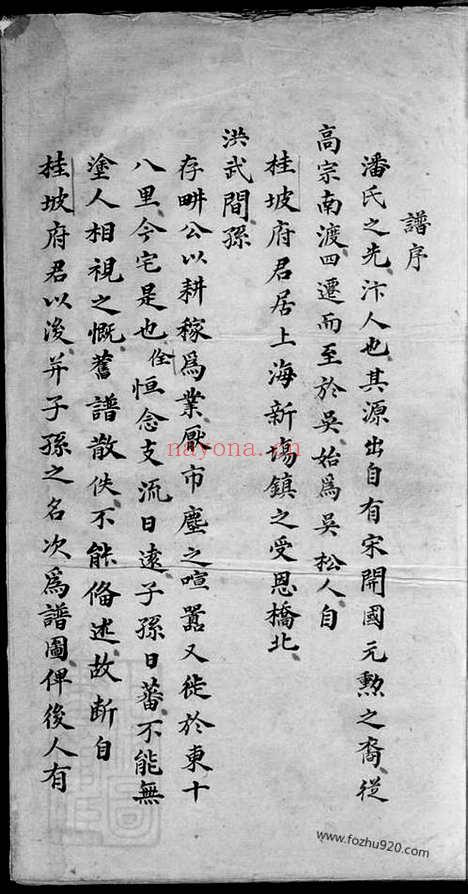 譜序
潘氏之先汴人也其源出自有宋開國元勲之裔從
高宗南渡四遷而至於吳始爲吳松人自
桂坡府君居上海新塲鎮之受恩橋北
洪武間孫
存畊公以耕稼爲業厭市塵之喧囂又徙於東十
八里今宅是也佺恒念支流日遠子孫日蕃不能無
塗人相視之慨舊譜散佚不能備述故断自
桂坡府君以後并子孫之名次爲譜圖俾後人有
nayona.cn
www.fozhu920.com